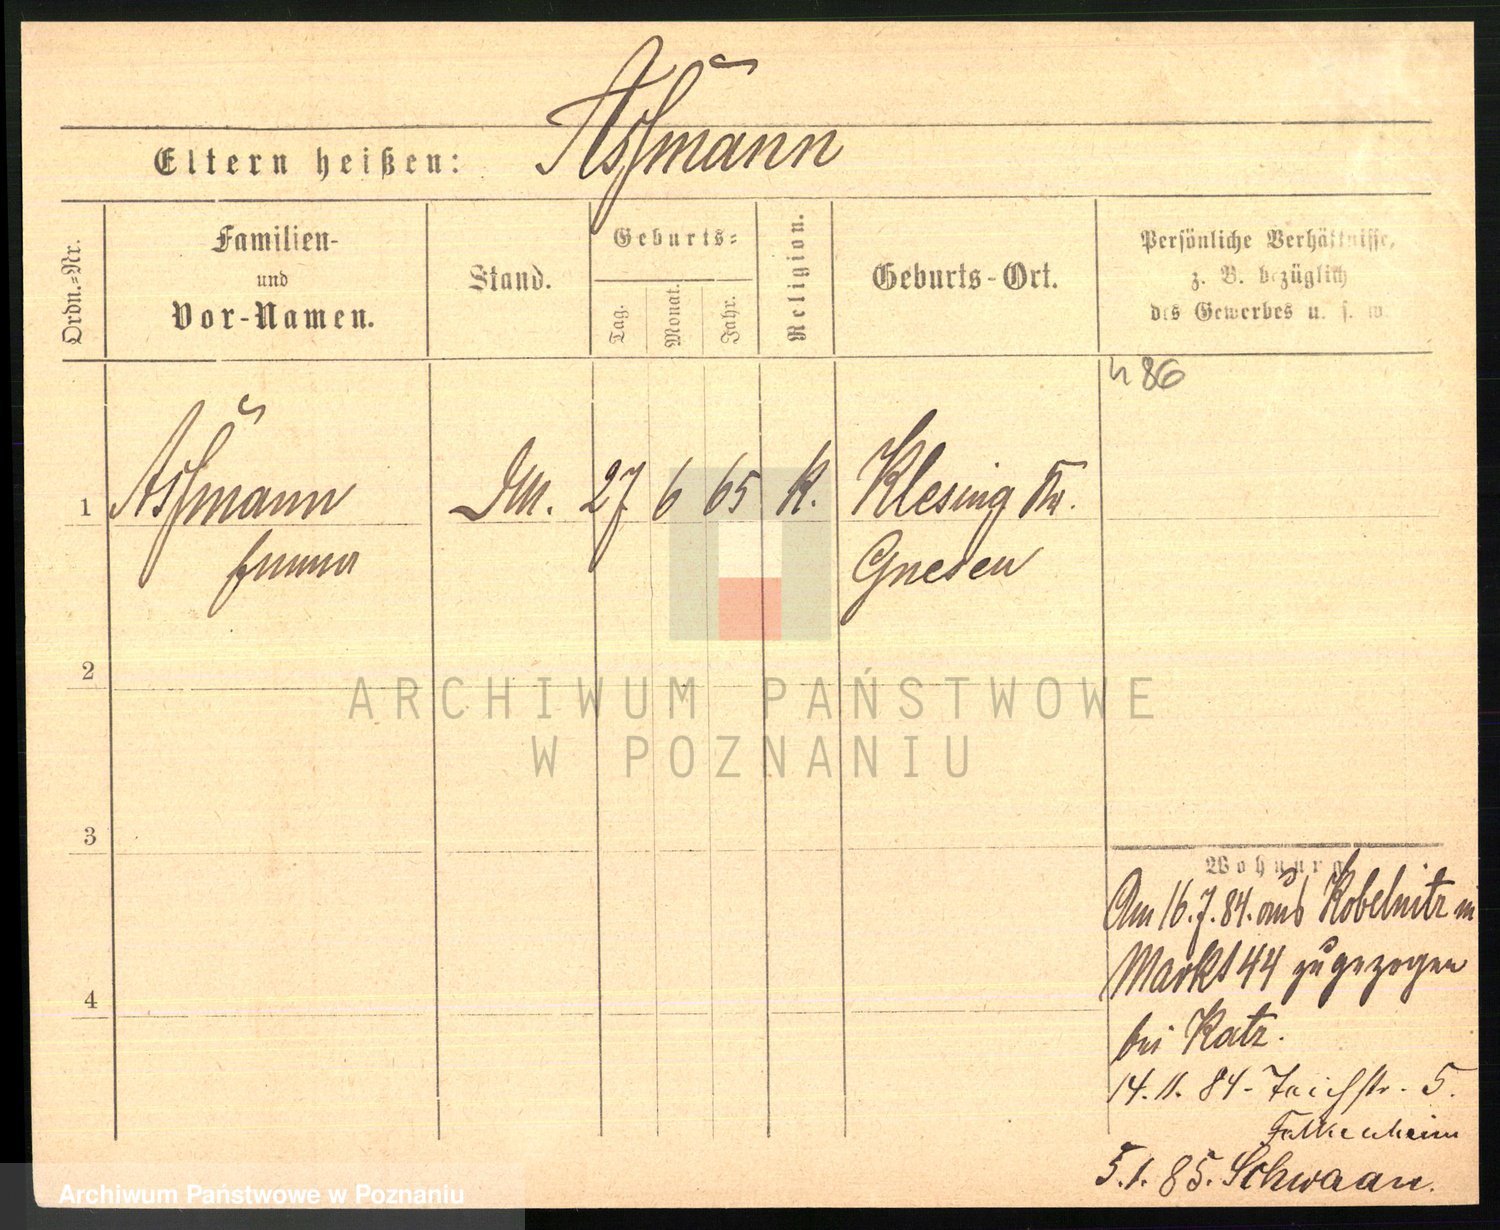 Aßmann
Eltern heißen:
Ordn.-Nr.
Familien-
und
Vor-Namen.
Stand.
Geburts-
Tag.
Monat.
Jahr.
Religion.
Geburts-Ort.
Persönliche Verhältnisse,
z. B. bezüglich
des Gewerbes u. s. w.
86
1 Aßmann 27 6 65 K. Klesing Kr.
Emma Gnesen
2
3
4
ARCHIWUM PAŃSTWOWE
W POZNANIU
Wohnung
Am 16.7.84. aus Kobelnitz in
Markt 44 zugezogen
bei Katz.
14.11.84- Teichstr. 5.
Falkenheim
5.1.85. Schwaan.
Archiwum Państwowe w Poznaniu